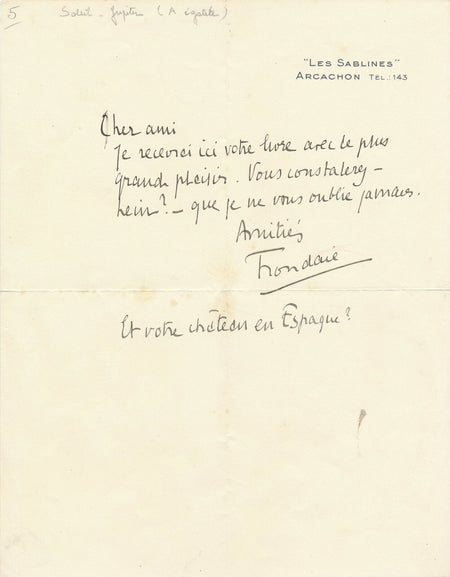 5 Soleil - Jupiter (A égalité)
"LES SABLINES"
ARCACHON TÉL.: 143
Cher ami
Je recevrai ici votre livre avec le plus
grand plaisir. Vous constaterez -
hein? - que je ne vous oublie jamais.
Amitiés
Frondaie
Et votre château en Espagne?